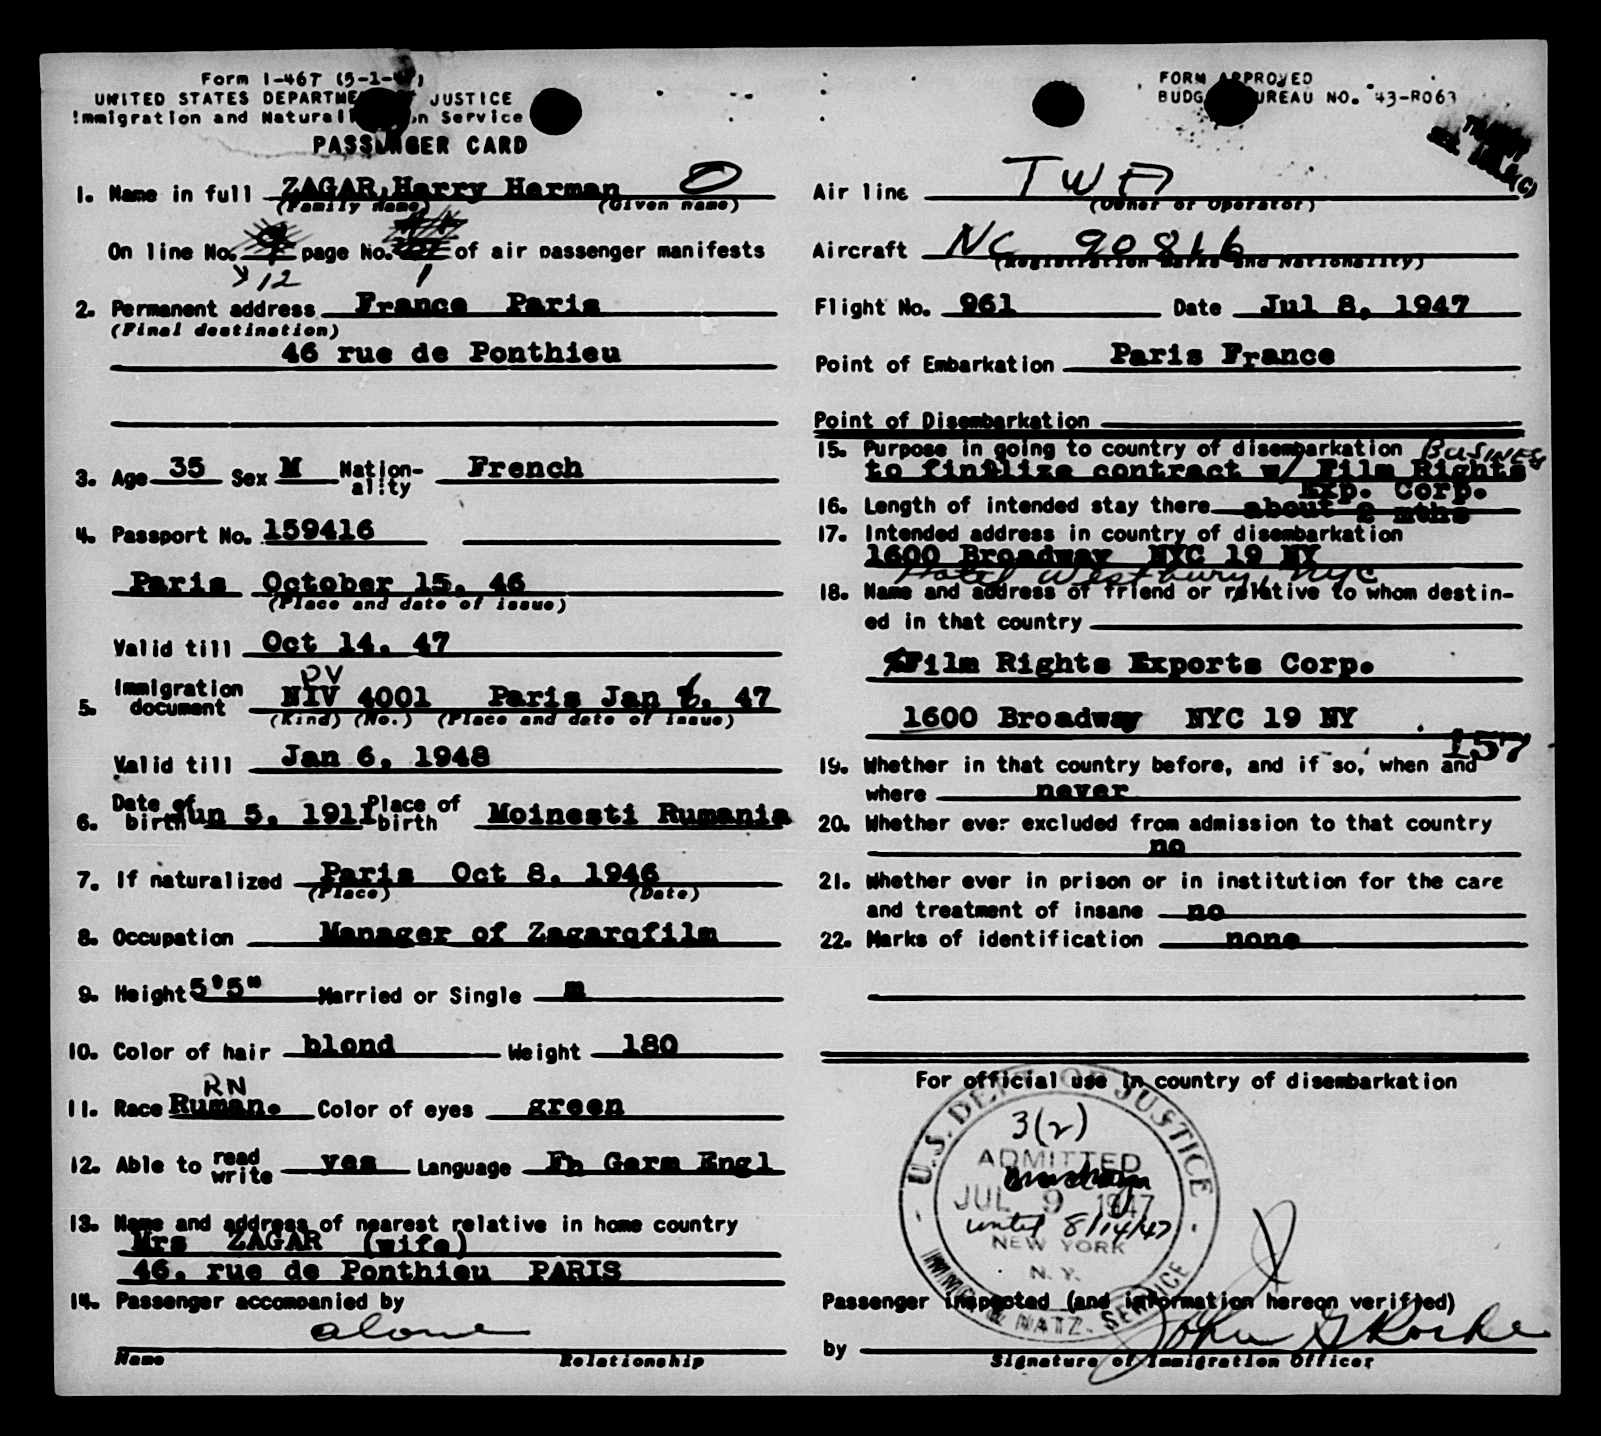 Form I-467 (5-1-47)
UNITED STATES DEPARTMENT OF JUSTICE
Immigration and Naturalization Service
PASSENGER CARD
FORM APPROVED
BUDGET BUREAU NO. 43-R063
1. Name in full ZAGAR, Harry Herman
(Family name) (Given name)
On line No. page No. of air passenger manifests
12 1
2. Permanent address France Paris
(Final destination)
46 rue de Ponthieu
3. Age 35 Sex M Nation-ality French
4. Passport No. 159416
Paris October 15, 46
(Place and date of issue)
Valid till Oct 14, 47
PV
5. Immigration document NIV 4001 Paris Jan 6, 47
(Kind) (No.) (Place and date of issue)
Valid till Jan 6, 1948
6. Date of birth Jun 5, 1911 Place of birth Moinesti Rumania
7. If naturalized Paris Oct 8, 1946
(Place) (Date)
8. Occupation Manager of Zagarofilm
9. Height 5'5" Married or Single m
10. Color of hair blond Weight 180
RN
11. Race Ruman. Color of eyes green
12. Able to read write yes Language Fh Germ Engl
13. Name and address of nearest relative in home country
Mrs ZAGAR (wife)
46, rue de Ponthieu PARIS
14. Passenger accompanied by
alone
Name Relationship
Air line TWA
(Owner or Operator)
Aircraft NC 90816
(Registration Marks and Nationality)
Flight No. 961 Date Jul 8, 1947
Point of Embarkation Paris France
Point of Disembarkation
15. Purpose in going to country of disembarkation BUSINESS
to finalize contract w/ Film Rights
Exp. Corp.
16. Length of intended stay there about 2 mths
17. Intended address in country of disembarkation
1600 Broadway NYC 19 NY
Hotel Westbury, NYC
18. Name and address of friend or relative to whom destin-
ed in that country
Film Rights Exports Corp.
1600 Broadway NYC 19 NY
157
19. Whether in that country before, and if so, when and
where never
20. Whether ever excluded from admission to that country
no
21. Whether ever in prison or in institution for the care
and treatment of insane no
22. Marks of identification none
For official use in country of disembarkation
U.S. DEPT. OF JUSTICE
3(2)
ADMITTED
JUL 9 1947
until 8/14/47
NEW YORK
N.Y.
IMMIG. & NATZ. SERVICE
Passenger inspected (and information hereon verified)
by John G Roche
Signature of Immigration Officer